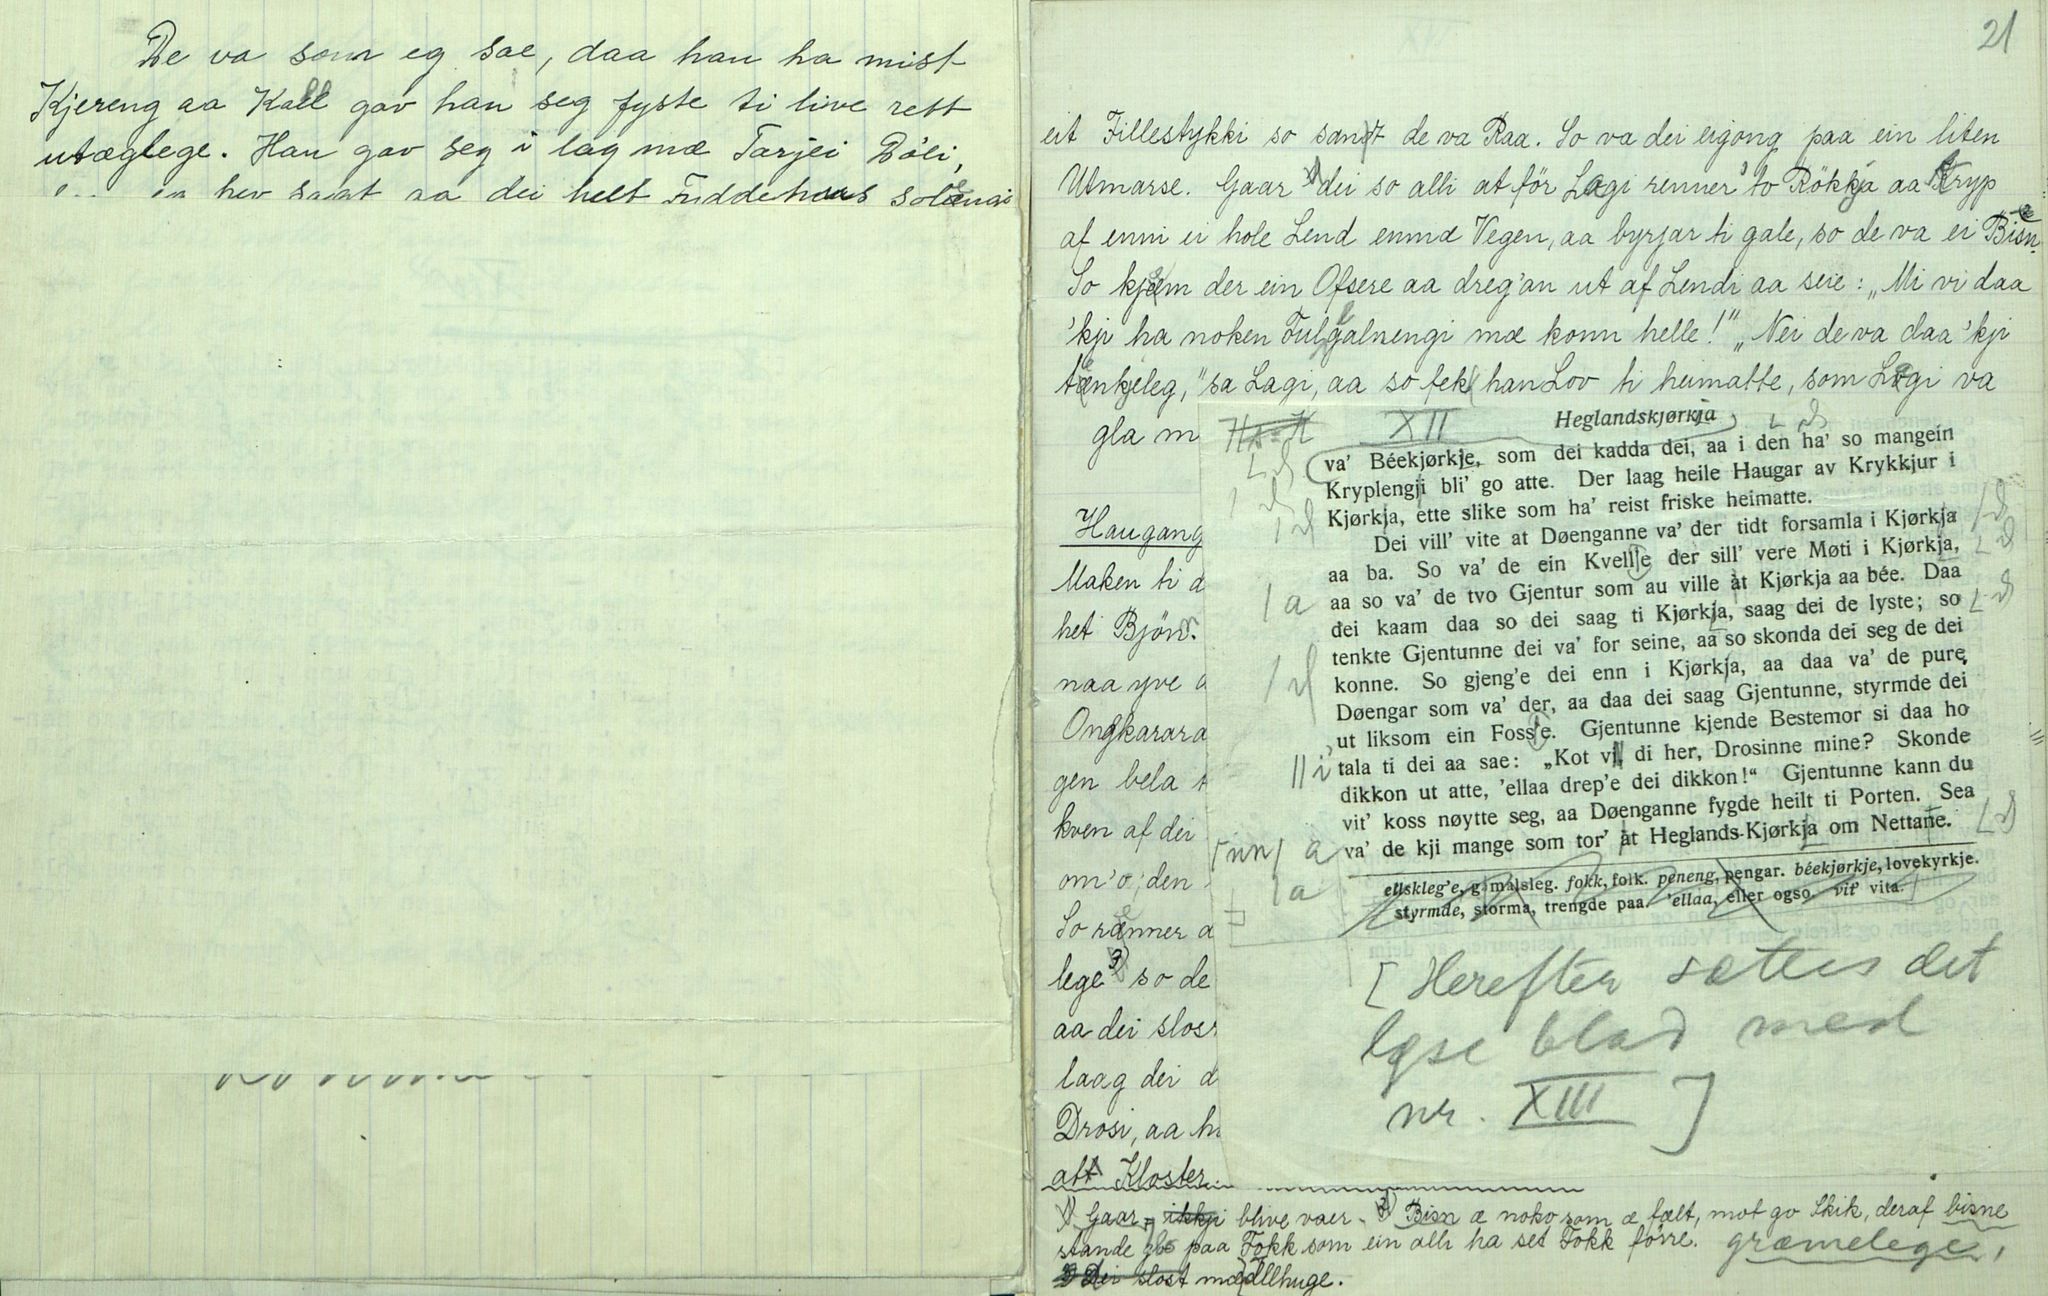 De va som eg sae, daa han ha mist
Kjereng aa Kall gav han seg fyste ti live rett
utæglege. Han gav seg i lag mæ Tarjei Bóli,
hev sagt aa dei helt Fuddehaas
21
eit Fillestykki so sandt de va Raa. So va dei eigong paa ein liten
Utmarse. Gaar 1) dei so alli at för Lagi renner to Rökkja aa Kryp
af enni ei hole Lend enmæ Vegen, aa byrjar ti gale, so de va ei Bisn.
So kjem der ein Ofsere aa dreg'an ut af Lendi aa seie: „Mi vi daa
'kji ha noken Fulgalnengi mæ konn helle!" „Nei de va daa 'kji
tenkjeleg," sa Lagi, aa so fek han Lov ti heimatte, som Lagi va
gla m
XII Heglandskjørkja
va' Béekjørkje, som dei kadda dei, aa i den ha' so mangein
Kryplengji bli' go atte. Der laag heile Haugar av Krykkjur i
Kjørkja, ette slike som ha' reist friske heimatte.
Dei vill' vite at Døenganne va' der tidt forsamla i Kjørkja
aa ba. So va' de ein Kvellje der sill' vere Møti i Kjørkja,
aa so va' de tvo Gjentur som au ville åt Kjørkja aa bée. Daa
dei kaam daa so dei saag ti Kjørkja, saag dei de lyste; so
tenkte Gjentunne dei va' for seine, aa so skonda dei seg de dei
konne. So gjeng'e dei enn i Kjørkja, aa daa va' de pure
Døengar som va' der, aa daa dei saag Gjentunne, styrmde dei
ut liksom ein Foss'e. Gjentunne kjende Bestemor si daa ho
tala ti dei aa sae: „Kot vil di her, Drosinne mine? Skonde
dikkon ut atte, 'ellaa drep'e dei dikkon!“ Gjentunne kann du
vit' koss nøytte seg, aa Døenganne fygde heilt ti Porten. Sea
va' de kji mange som tor' åt Heglands-Kjørkja om Nettane.
ellskleg'e, gamalsleg. fokk, folk. peneng, pengar. béekjørkje, lovekyrkje.
styrmde, storma, trengde paa. 'ellaa, eller ogso. vit' vita.
[Herefter sættes det
løse blad med
nr. XIII]
Haugang
Maken ti d
het Björn.
naa yve a
Ongkarara
gen bela
kven af dei
om'o, den
So renner a
lege 3) so de
aa dei slos
laag dei d
Drosi, aa h
att Kloster.
1) Gaar - ikkji blive vaer. 2) Bisn æ noko som æ fælt, mot go Skik, deraf bisne
stande paa Fokk som ein alli ha set Fokk förre. græmelege,
3) Dei slost mæ Illhuge.